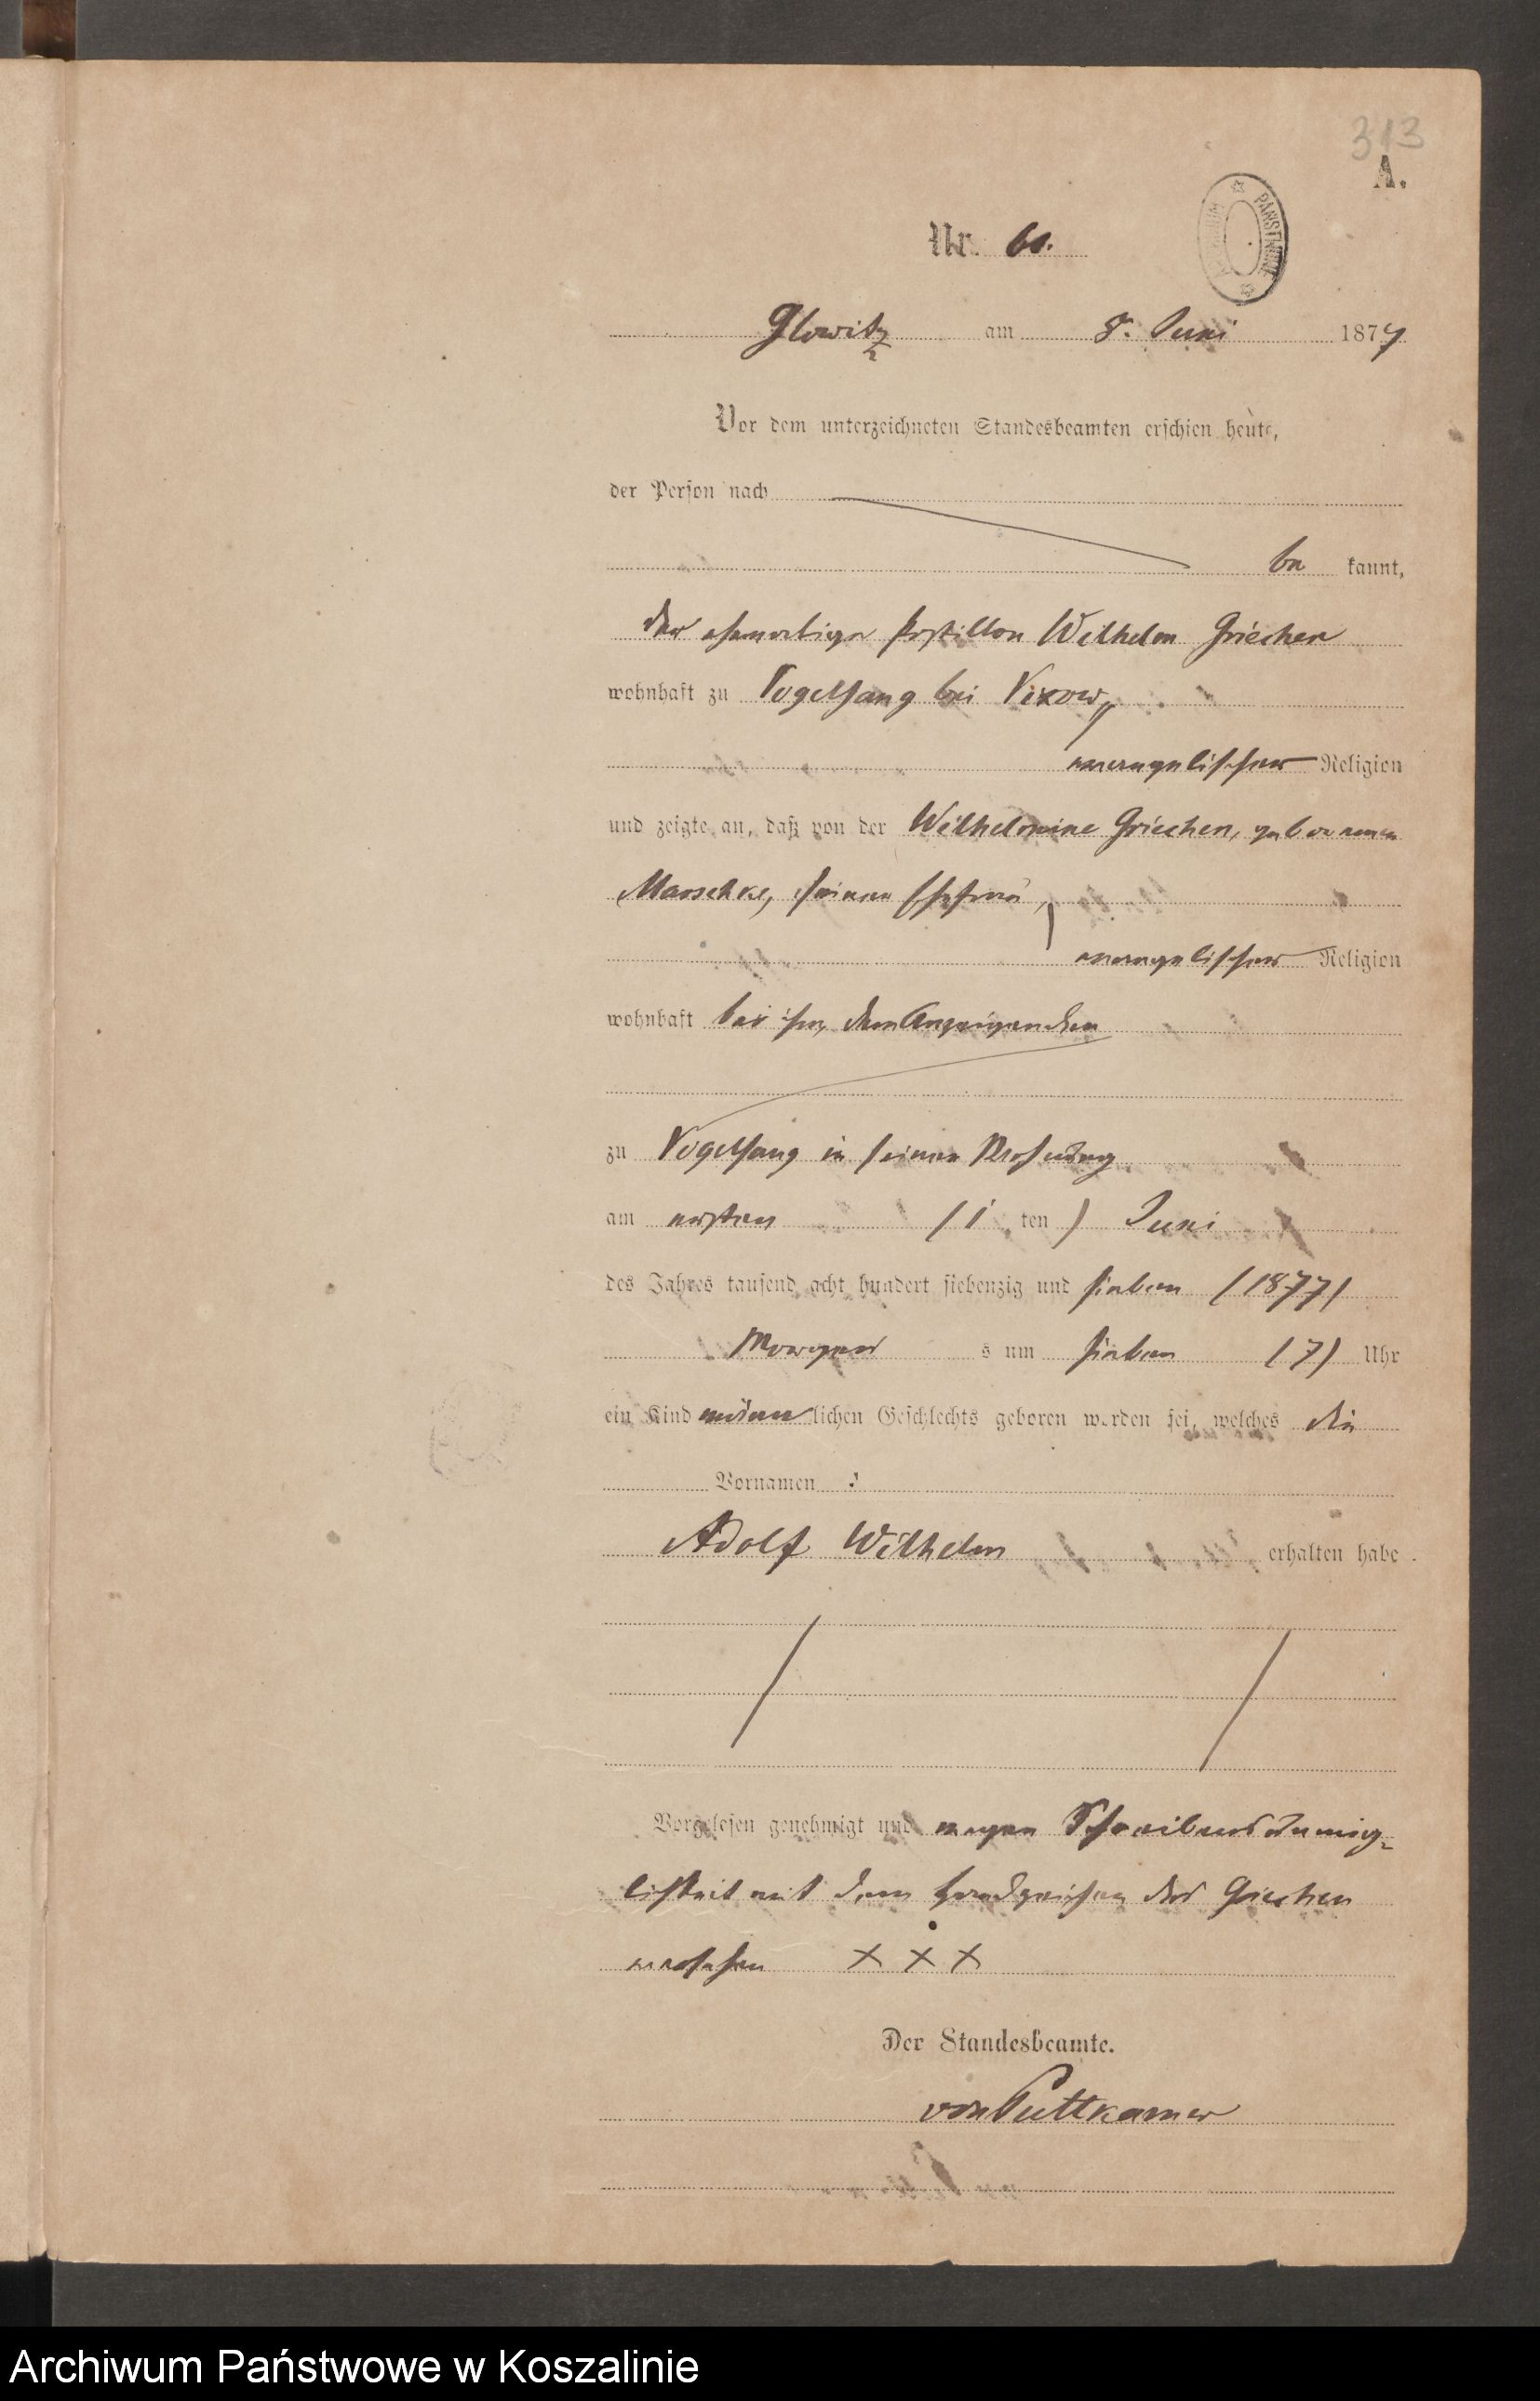 313
A.
ARCHIWUM PAŃSTWOWE
Nr. 60.
Glowitz am 8. Juni 1877
Vor dem unterzeichneten Standesbeamten erschien heute,
der Person nach
be kannt,
der ehemalige Postillon Wilhelm Griechen
wohnhaft zu Vogelsang bei Vixow,
evangelischer Religion
und zeigte an, daß von der Wilhelmine Griechen, geborenen
Maschke, seiner Ehefrau,
evangelischer Religion
wohnhaft bei ihm, dem Anzeigenden
zu Vogelsang in seiner Wohnung
am ersten (1 ten) Juni
des Jahres tausend acht hundert siebenzig und sieben (1877)
Morgens um sieben (7) Uhr
ein Kind männlichen Geschlechts geboren worden sei, welches die
Vornamen :
Adolf Wilhelm erhalten habe.
Vorgelesen genehmigt und wegen Schreibens
mit dem Handzeichen des Griechen
versehen X X X
Der Standesbeamte.
von Puttkamer
Archiwum Państwowe w Koszalinie